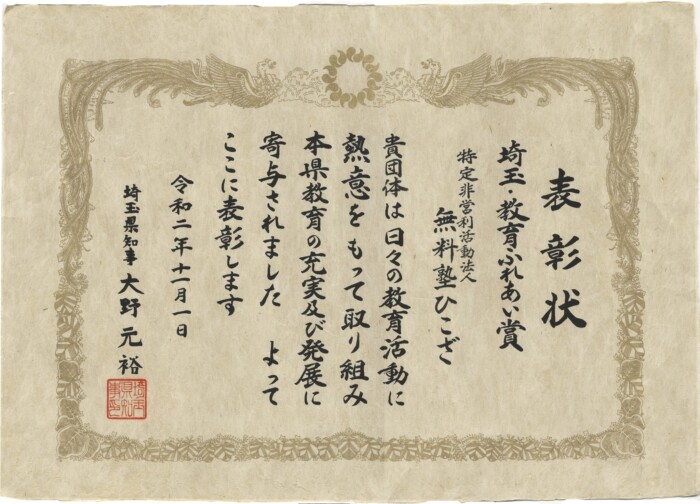 表彰状
埼玉・教育ふれあい賞
特定非営利活動法人
無料塾ひこざ
貴団体は日々の教育活動に
熱意をもって取り組み
本県教育の充実及び発展に
寄与されました　よって
ここに表彰します
令和二年十一月一日
埼玉県知事　大野元裕